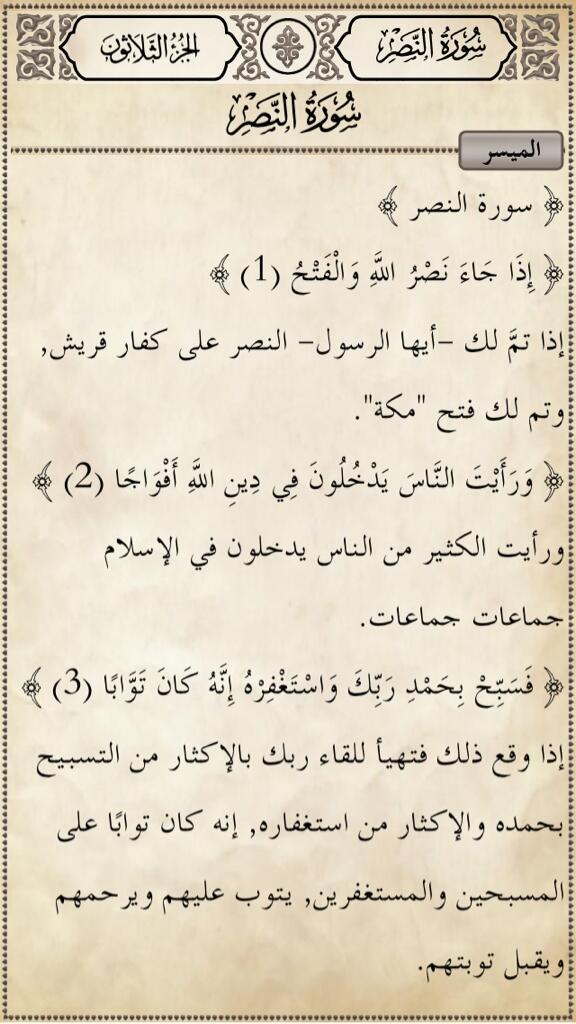 سُورَةُ النَّصْرِ الجُزْءُ الثَّلَاثُونَ
سُورَةُ النَّصْرِ
الميسر
﴿ سورة النصر ﴾
﴿ إِذَا جَاءَ نَصْرُ اللَّهِ وَالْفَتْحُ (1) ﴾
إذا تمَّ لك -أيها الرسول- النصر على كفار قريش,
وتم لك فتح "مكة".
﴿ وَرَأَيْتَ النَّاسَ يَدْخُلُونَ فِي دِينِ اللَّهِ أَفْوَاجًا (2) ﴾
ورأيت الكثير من الناس يدخلون في الإسلام
جماعات جماعات.
﴿ فَسَبِّحْ بِحَمْدِ رَبِّكَ وَاسْتَغْفِرْهُ إِنَّهُ كَانَ تَوَّابًا (3) ﴾
إذا وقع ذلك فتهيأ للقاء ربك بالإكثار من التسبيح
بحمده والإكثار من استغفاره, إنه كان توابًا على
المسبحين والمستغفرين, يتوب عليهم ويرحمهم
ويقبل توبتهم.